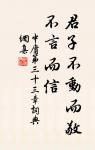 君子不動而敬
不言而信
中庸第三十三章詞典
網集